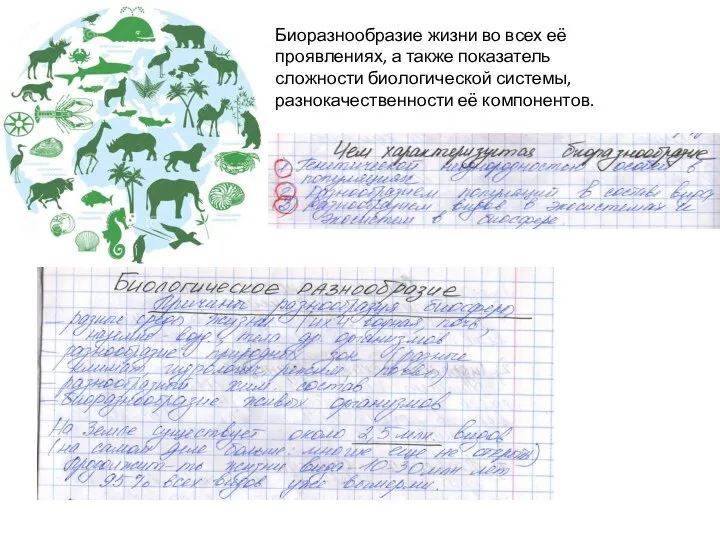 Биоразнообразие жизни во всех её
проявлениях, а также показатель
сложности биологической системы,
разнокачественности её компонентов.
Чем характеризуется биоразнообразие
1) Генетической неоднородностью особей в
популяциях
2) Разнообразием популяций в составе вида
3) Разнообразием видов в экосистемах и
экосистем в биосфере.
Биологическое разнообразие
Причины разнообразия биосферы
– разные среды жизни (их 4 водная, почв,
наземно-возд., тела др. организмов
– разнообразие природных зон (разные
климат, рельеф почвы)
– разнообразный хим. состав
– Биоразнообразие живых организмов
На Земле существует около 2,5 млн. видов
(на самом деле больше: многие ещё не открыты)
Продолжит-ть жизни вида - 10-30 млн лет
95% всех видов уже вымерли.